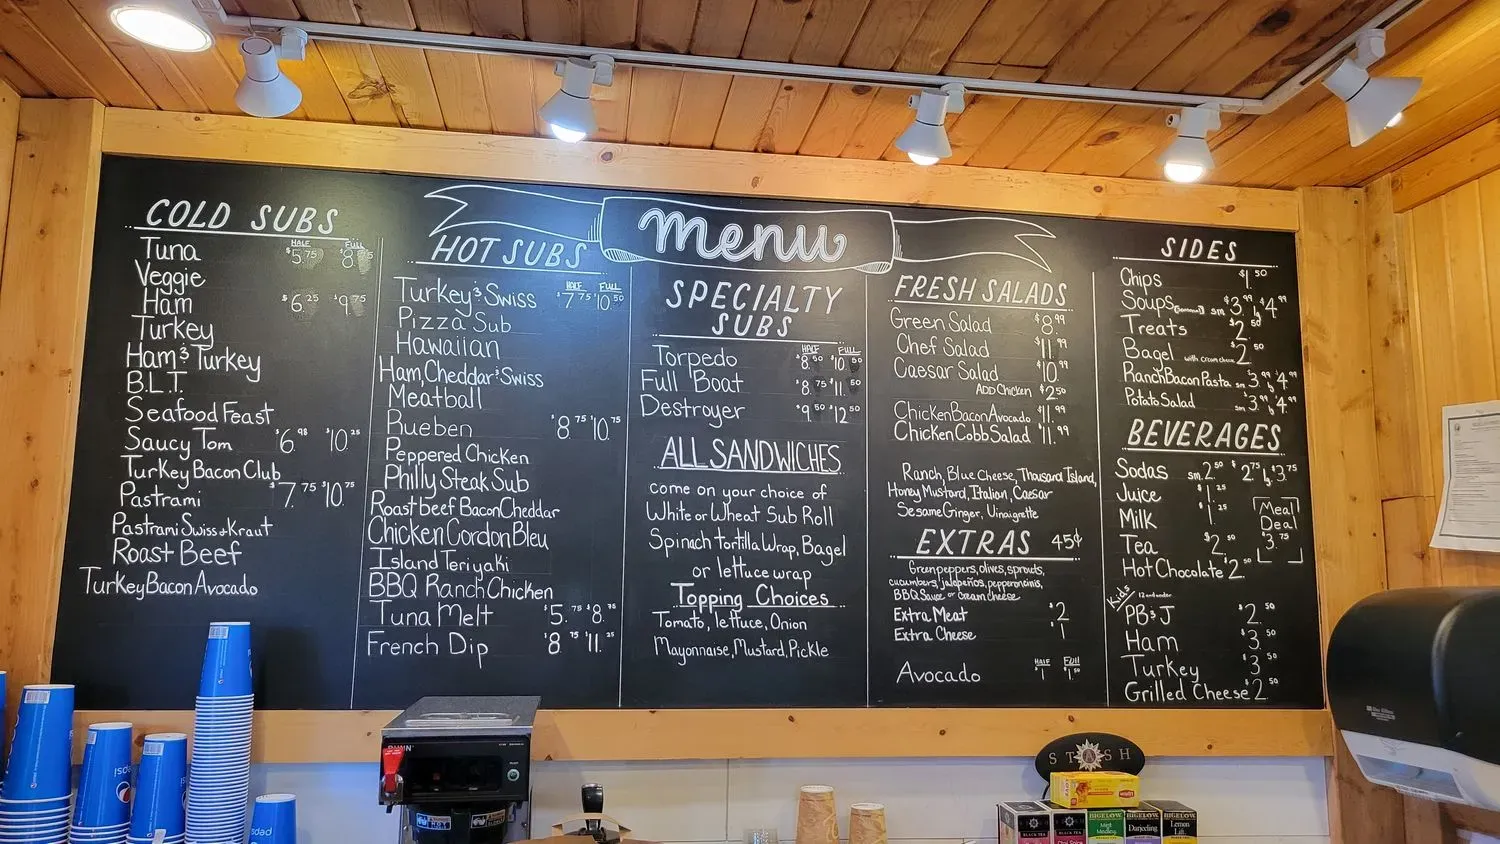 menu
COLD SUBS
HALF FULL
Tuna $5.75 $8.75
Veggie
Ham $6.25 $9.75
Turkey
Ham & Turkey
B.L.T.
Seafood Feast
Saucy Tom $6.98 $10.25
Turkey Bacon Club
Pastrami $7.75 $10.75
Pastrami Swiss + Kraut
Roast Beef
Turkey Bacon Avocado
HOT SUBS
HALF FULL
Turkey & Swiss $7.75 $10.50
Pizza Sub
Hawaiian
Ham, Cheddar & Swiss
Meatball
Rueben $8.75 $10.75
Peppered Chicken
Philly Steak Sub
Roast beef Bacon Cheddar
Chicken Cordon Bleu
Island Teriyaki
BBQ Ranch Chicken
Tuna Melt $5.75 $8.75
French Dip $8.75 $11.25
SPECIALTY
SUBS
HALF FULL
Torpedo $8.50 $10.50
Full Boat $8.75 $11.50
Destroyer $9.50 $12.50
ALL SANDWICHES
come on your choice of
White or Wheat Sub Roll
Spinach tortilla Wrap, Bagel
or lettuce wrap
Topping Choices
Tomato, lettuce, Onion
Mayonnaise, Mustard, Pickle
FRESH SALADS
Green Salad $8.99
Chef Salad $11.99
Caesar Salad $10.99
ADD Chicken $2.50
Chicken Bacon Avocado $11.99
Chicken Cobb Salad $11.99
Ranch, Blue Cheese, Thousand Island,
Honey Mustard, Italian, Caesar
Sesame Ginger, Vinaigrette
EXTRAS 45¢
Green peppers, olives, sprouts,
cucumbers, jalapeños, pepperoncinis,
BBQ Sauce or cream cheese
Extra Meat $2
Extra Cheese $1
HALF FULL
Avocado $1 $1.50
SIDES
Chips $1.50
Soups sm $3.99 lg $4.99
Treats $2.50
Bagel with cream cheese $2.50
Ranch Bacon Pasta sm $3.99 lg $4.99
Potato Salad sm $3.99 lg $4.99
BEVERAGES
Sodas sm. $2.50 $2.75 lg. $3.75
Juice $1.25
Milk $1.25
Meal
Deal
$3.75
Tea $2.50
Hot Chocolate $2.50
Kids 12 and under
PB & J $2.50
Ham $3.50
Turkey $3.50
Grilled Cheese $2.50
BUNN
STASH
pepsi
pepsi
BIGELOW
BIGELOW
BIGELOW
Mint
Medley
Darjeeling
Lemon
Lift
BLACK TEA